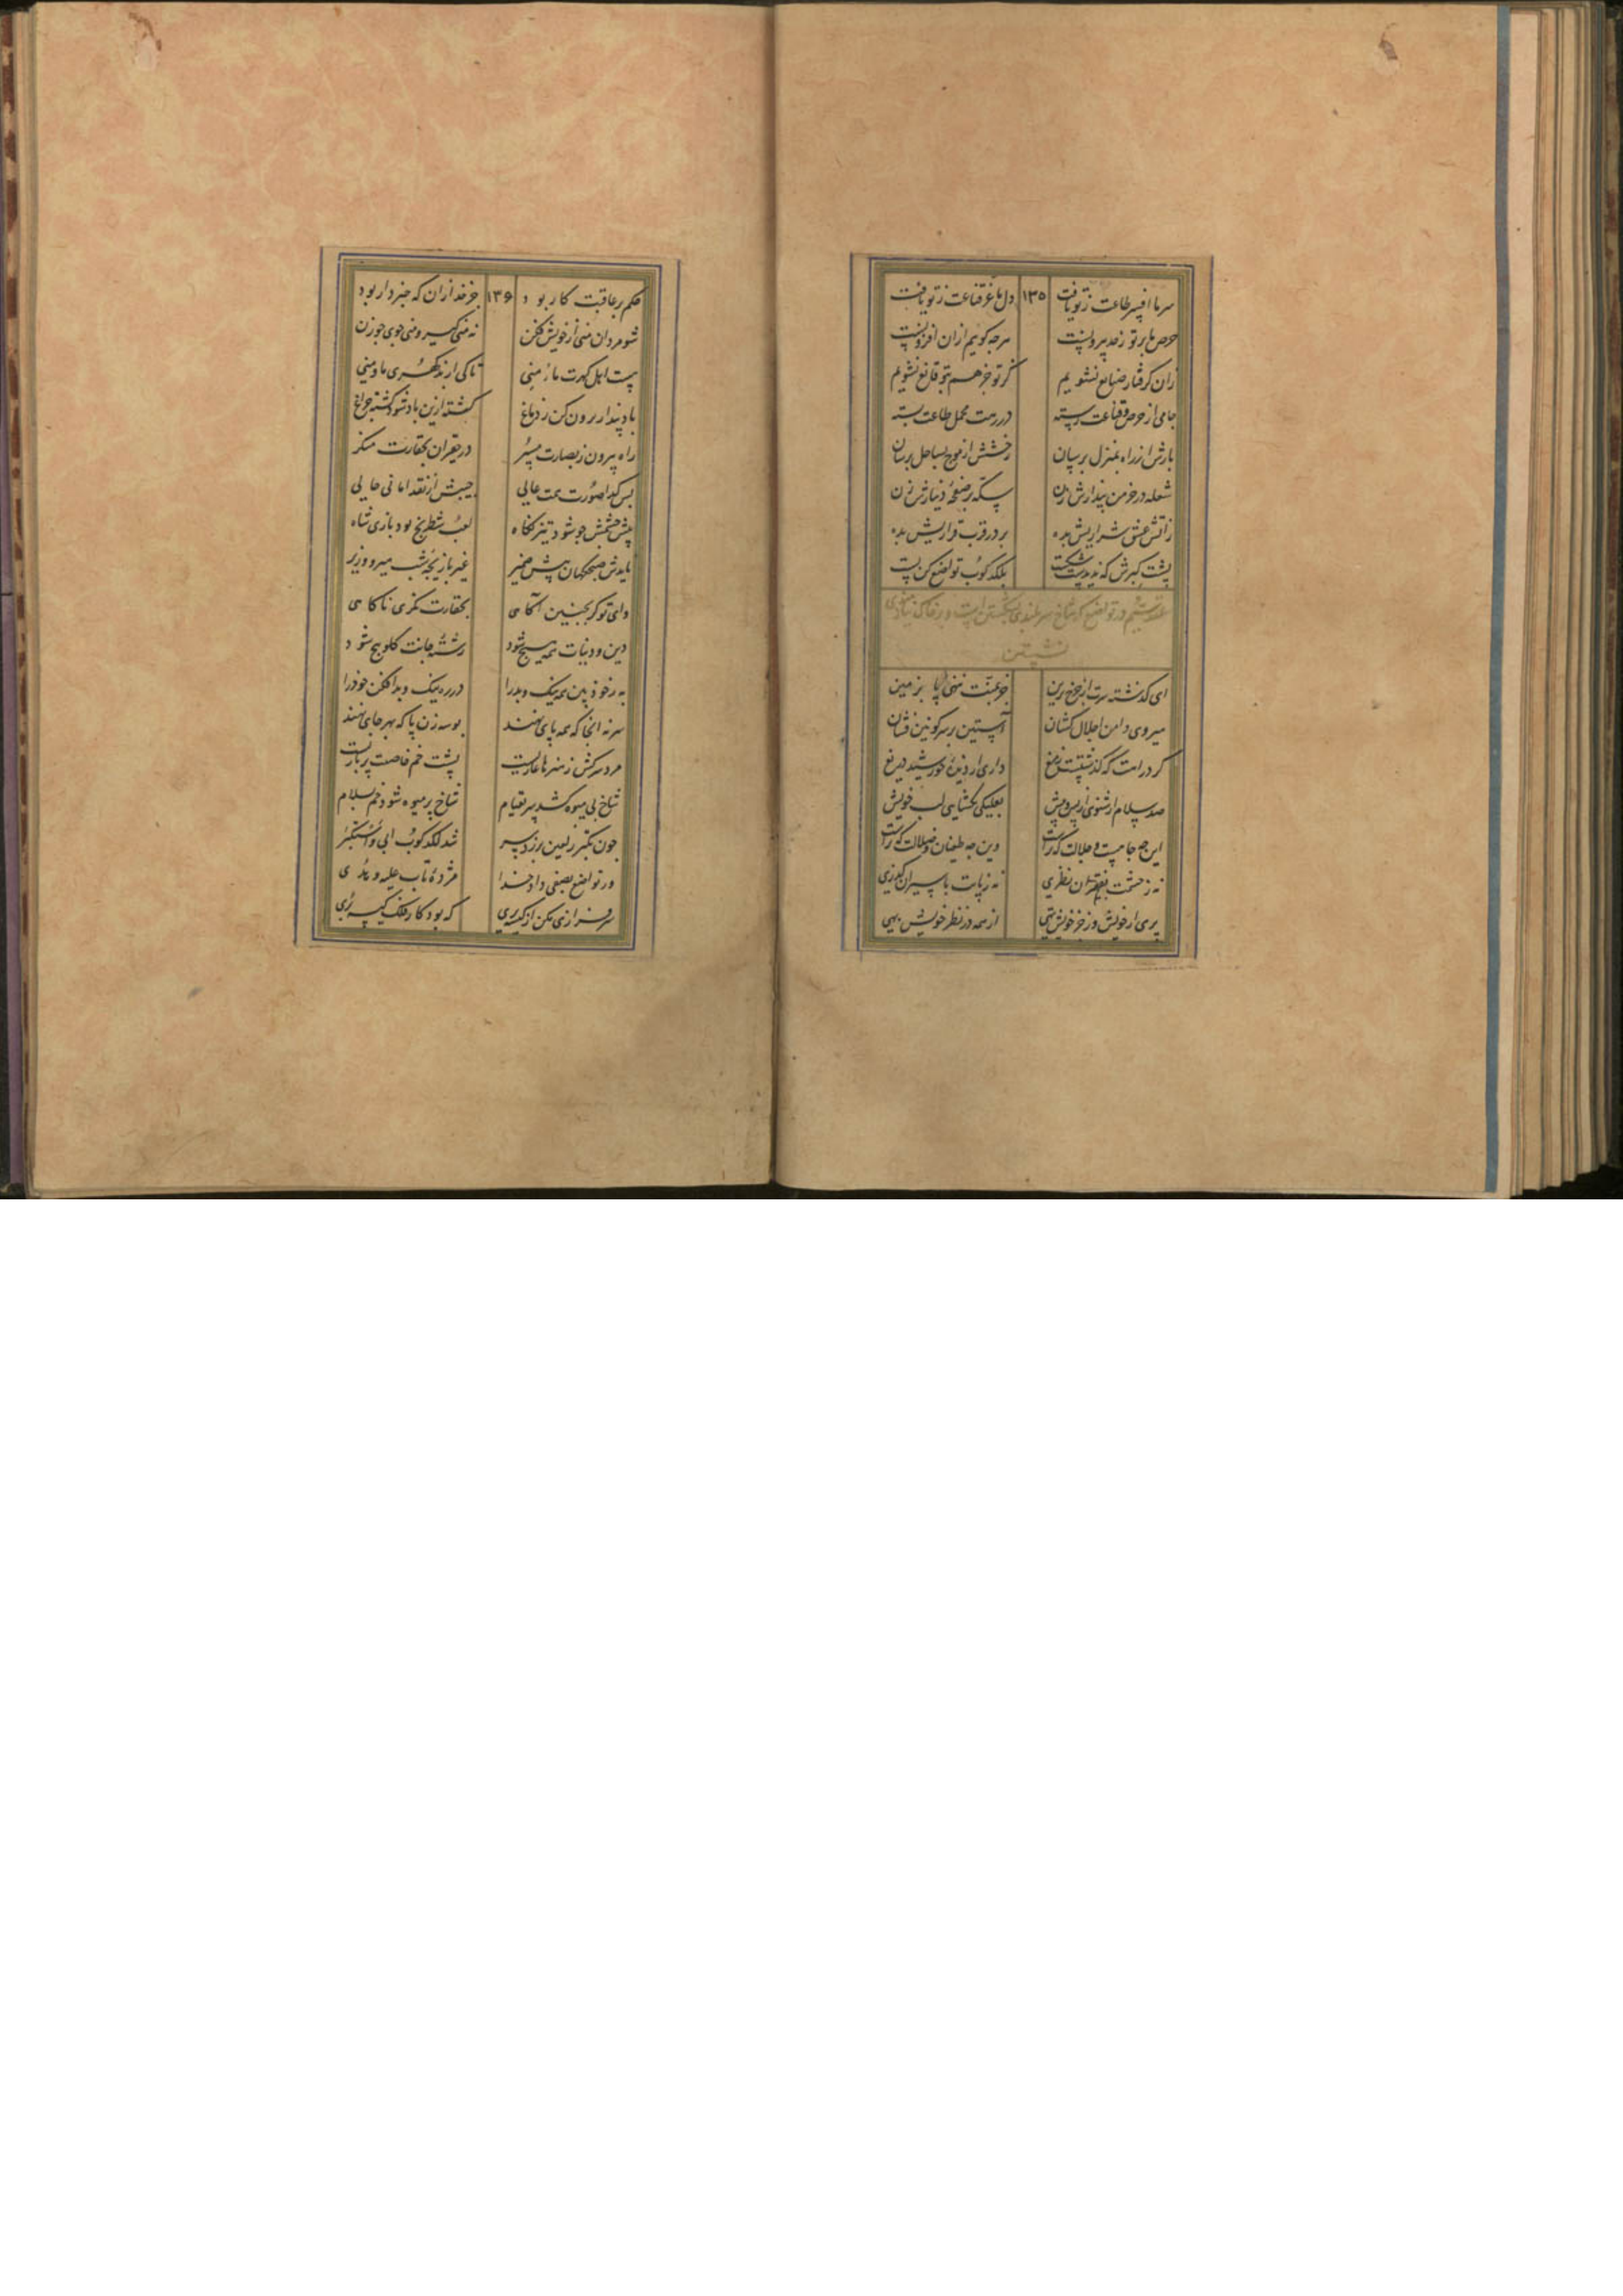 سر ما افسر طاعت ز تو یافت ۱۳۵ دل ما عز قناعت ز تو یافت
حرص ما بر تو ز حد بیرونست هرچه گوییم ازان افزونست
زان گرفتار ضیایع نشویم گر تو جز هم بتو قانع نشویم
جامی از حرص و قناعت رسته در رهت محمل طاعت بسته
بارش از راه بمنزل برسان رختش از موج بساحل برسان
شعله در خرمن پندارش زن سکه بر صفحه دینارش زن
زآتش عشق شراریش بده بر در قرب قراریش بده
پشت کبرش که ندیدست شکست بلگدکوب تواضع کن پست
عقد ششم در تواضع که شاخ سربلندی شکستن است و بر خاک نیازمندی
نشستن
ای گذشته سرت از چرخ برین جز بمنت ننهی پا بزمین
میروی دامن اجلال کشان آستین بر سر کونین فشان
گرد راهت که گذشتست ز میغ داری از دیده خورشید دریغ
صد سلام ار شنوی از پس و پیش بعلیکی نگشایی لب خویش
این چه جاهست و جلالت که تراست وین چه طغیان و ضلالت که تراست
نه ز حشمت بفقیران نظری نه ز پایت باسیران گذری
پری از خویش و ز جز خویش تهی از همه در نظر خویش بهی
حکم بر عاقبت کار بود ۱۳۶ جز خدا زان که خبردار بود
شو مردان منی از خویش فکن نه منی گیر و منی جوی چو زن
پست اهل کهرت ما و منی تا کی از بدگهری ما و منی
باد پندار برون کن ز دماغ گشته ازین باد شود کشته چراغ
راه بیرون ز بصارت مسپر در فقیران بحقارت منگر
بس گدا صورت همت عالی جیبش از نقد امانی خالی
پیش چشمش چو شود تیز نگاه لعب شطرنج بود بازی شاه
نایدش صبحگهان پیش ضمیر غیر بازیچه شب میر و وزیر
وای تو گر بچنین آگاهی بحقارت نگری ناگاهی
دین و دنیات همه هیچ شود رشته جانت گلوپیچ شود
به ز خود بین همه نیک و بد را در ره نیک و بد افکن خود را
سر نه آنجا که همه پای نهند بوسه زن پا که بهر جای نهند
مرد سرکش ز هنرها عاریست پشت خم خاصیت پرباریست
شاخ بی میوه کشد سر بقیام شاخ پر میوه شود خم بسلام
چون تکبر ز لعین بر زد سر شد لگدکوب ابی واستکبر
ور تواضع بصفی داد خدا مژده تاب علیه و هدی
سرفرازی مکن از کیسه بری که بود کار فلک کیسه بری